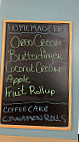 HOMEMADE PIES
Oreo Cream
Butterfinger
Coconut Cream
Apple
Fruit Rollup
COFFEE CAKE
CINNAMON ROLLS